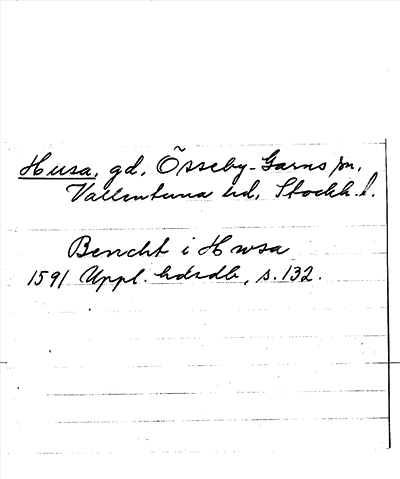 Husa, gd, Össeby-Garns sn,
Vallentuna hd, Stockh. l.
Bencht i Hwsa
1591 Uppl. hdrdb, s. 132.